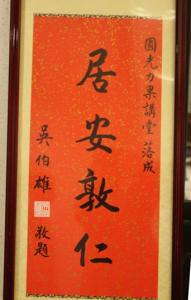 圓光力果講堂落成
居安敦仁
吳伯雄 敬題